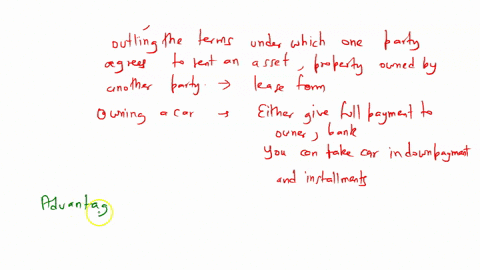 outling the terms under which one party
agrees to rent an asset, property owned by
another party → lease form
Owning a car → Either give full payment to
owner, bank
You can take car in downpayment
and installments
Advantag